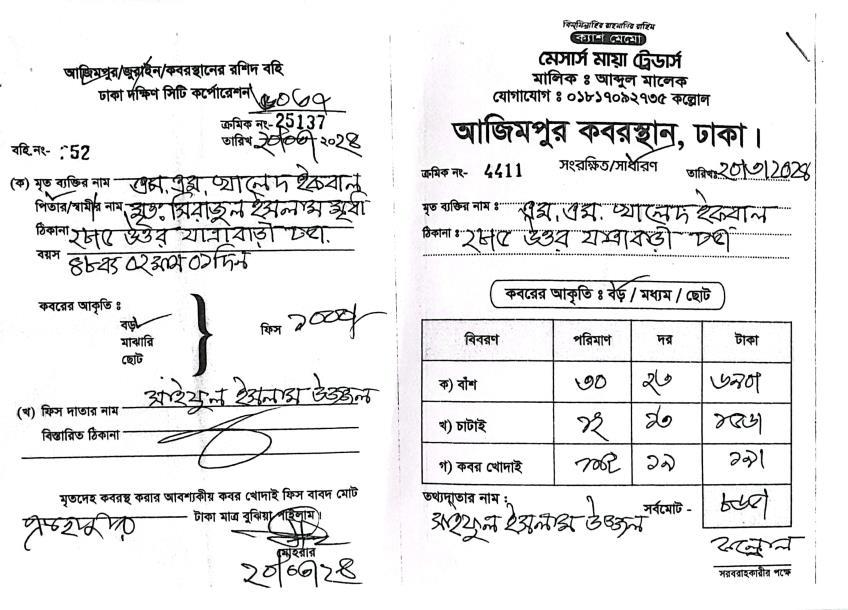 আজিমপুর/জুরাইন/কবরস্থানের রশিদ বহি
ঢাকা দক্ষিণ সিটি কর্পোরেশন
ক্রমিক নং- 25137
বহি.নং- 52
তারিখ ২০/০৩/২০২৪
(ক) মৃত ব্যক্তির নাম এম, এম, খালেদ ইকবাল
পিতার/স্বামীর নাম মৃত: সিরাজুল ইসলাম মৃধা
ঠিকানা ২৮/৫ উত্তর যাত্রাবাড়ী ঢাকা.
বয়স ৪৮ বছর ০২ মাস ০১ দিন
কবরের আকৃতি :
বড়
মাঝারি
ছোট
ফিস ১০০০/
(খ) ফিস দাতার নাম সাইফুল ইসলাম উজ্জল
বিস্তারিত ঠিকানা
মৃতদেহ কবরস্থ করার আবশ্যকীয় কবর খোদাই ফিস বাবদ মোট
টাকা মাত্র বুঝিয়া পাইলাম।
মোহরার
২০/০৩/২৪
বিস্‌মিল্লাহির রাহমানির রাহিম
ক্যাশ মেমো
মেসার্স মায়া ট্রেডার্স
মালিক : আব্দুল মালেক
যোগাযোগ : ০১৮১৭০৯২৭৩৫ কল্লোল
আজিমপুর কবরস্থান, ঢাকা।
ক্রমিক নং- 4411
সংরক্ষিত/সাধারণ
তারিখ: ২০/৩/2028
মৃত ব্যক্তির নাম : এম, এম, খালেদ ইকবাল
ঠিকানা : ২৮/৫ উত্তর যাত্রাবাড়ী ঢাকা
কবরের আকৃতি : বড় / মধ্যম / ছোট
বিবরণ পরিমাণ দর টাকা
ক) বাঁশ ৩০ ২৩ ৬৯০/
খ) চাটাই
গ) কবর খোদাই
তথ্যদাতার নাম :
সাইফুল ইসলাম উজ্জল
সর্বমোট -
কল্লোল
সরবরাহকারীর পক্ষে